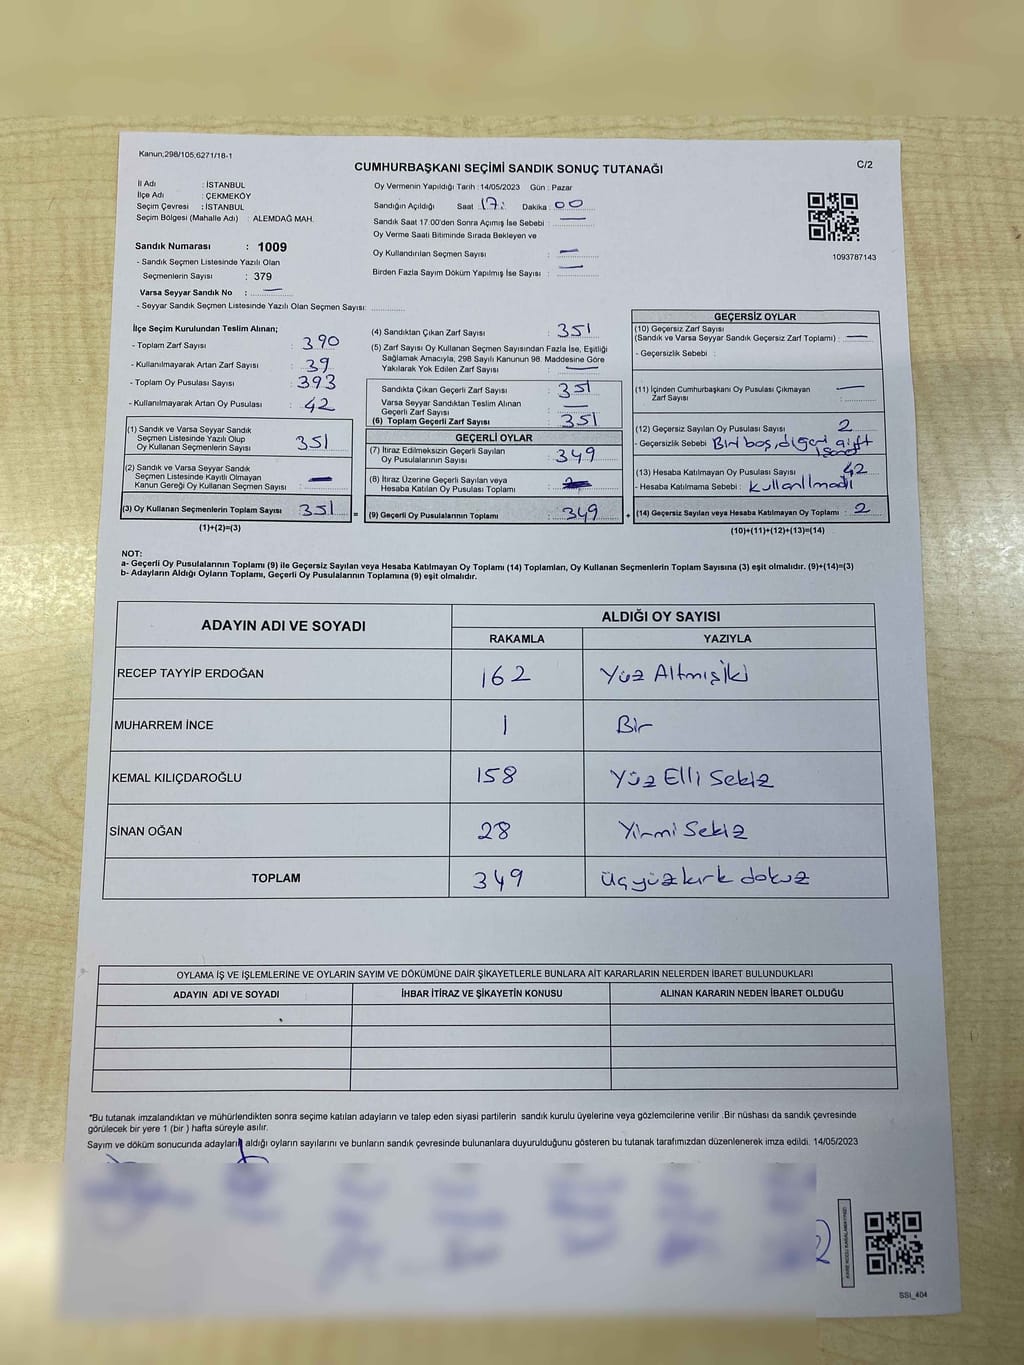 Kanun;298/105,6271/18-1
C/2
CUMHURBAŞKANI SEÇİMİ SANDIK SONUÇ TUTANAĞI
İl Adı : İSTANBUL
İlçe Adı : ÇEKMEKÖY
Seçim Çevresi : İSTANBUL
Seçim Bölgesi (Mahalle Adı) : ALEMDAĞ MAH.
Sandık Numarası : 1009
- Sandık Seçmen Listesinde Yazılı Olan
Seçmenlerin Sayısı : 379
Varsa Seyyar Sandık No : —
- Seyyar Sandık Seçmen Listesinde Yazılı Olan Seçmen Sayısı:
Oy Vermenin Yapıldığı Tarih : 14/05/2023 Gün : Pazar
Sandığın Açıldığı Saat : 17: Dakika : 00
Sandık Saat 17.00'den Sonra Açılmış İse Sebebi : —
Oy Verme Saati Bitiminde Sırada Bekleyen ve
Oy Kullandırılan Seçmen Sayısı : —
Birden Fazla Sayım Döküm Yapılmış İse Sayısı : —
1093787143
İlçe Seçim Kurulundan Teslim Alınan;
- Toplam Zarf Sayısı : 390
- Kullanılmayarak Artan Zarf Sayısı : 39
- Toplam Oy Pusulası Sayısı : 393
- Kullanılmayarak Artan Oy Pusulası : 42
(1) Sandık ve Varsa Seyyar Sandık
Seçmen Listesinde Yazılı Olup
Oy Kullanan Seçmenlerin Sayısı : 351
(2) Sandık ve Varsa Seyyar Sandık
Seçmen Listesinde Kayıtlı Olmayan
Kanun Gereği Oy Kullanan Seçmen Sayısı : —
(3) Oy Kullanan Seçmenlerin Toplam Sayısı : 351 =
(1)+(2)=(3)
(4) Sandıktan Çıkan Zarf Sayısı : 351
(5) Zarf Sayısı Oy Kullanan Seçmen Sayısından Fazla İse, Eşitliği
Sağlamak Amacıyla, 298 Sayılı Kanunun 98. Maddesine Göre
Yakılarak Yok Edilen Zarf Sayısı : —
Sandıkta Çıkan Geçerli Zarf Sayısı : 351
Varsa Seyyar Sandıktan Teslim Alınan
Geçerli Zarf Sayısı : —
(6) Toplam Geçerli Zarf Sayısı : 351
GEÇERLİ OYLAR
(7) İtiraz Edilmeksizin Geçerli Sayılan
Oy Pusulalarının Sayısı : 349
(8) İtiraz Üzerine Geçerli Sayılan veya
Hesaba Katılan Oy Pusulası Toplamı :
(9) Geçerli Oy Pusulalarının Toplamı : 349 +
GEÇERSİZ OYLAR
(10) Geçersiz Zarf Sayısı
(Sandık ve Varsa Seyyar Sandık Geçersiz Zarf Toplamı) : —
- Geçersizlik Sebebi :
(11) İçinden Cumhurbaşkanı Oy Pusulası Çıkmayan
Zarf Sayısı : —
(12) Geçersiz Sayılan Oy Pusulası Sayısı : 2
- Geçersizlik Sebebi : Biri boş, diğeri çift
(13) Hesaba Katılmayan Oy Pusulası Sayısı : 42
- Hesaba Katılmama Sebebi : kullanılmadı
(14) Geçersiz Sayılan veya Hesaba Katılmayan Oy Toplamı : 2
(10)+(11)+(12)+(13)=(14)
NOT:
a- Geçerli Oy Pusulalarının Toplamı (9) ile Geçersiz Sayılan veya Hesaba Katılmayan Oy Toplamı (14) Toplamları, Oy Kullanan Seçmenlerin Toplam Sayısına (3) eşit olmalıdır. (9)+(14)=(3)
b- Adayların Aldığı Oyların Toplamı, Geçerli Oy Pusulalarının Toplamına (9) eşit olmalıdır.
ADAYIN ADI VE SOYADI
ALDIĞI OY SAYISI
RAKAMLA YAZIYLA
RECEP TAYYİP ERDOĞAN 162 Yüz Altmış İki
MUHARREM İNCE 1 Bir
KEMAL KILIÇDAROĞLU 158 Yüz Elli Sekiz
SİNAN OĞAN 28 Yirmi Sekiz
TOPLAM 349 Üçyüzkırk dokuz
OYLAMA İŞ VE İŞLEMLERİNE VE OYLARIN SAYIM VE DÖKÜMÜNE DAİR ŞİKAYETLERLE BUNLARA AİT KARARLARIN NELERDEN İBARET BULUNDUKLARI
ADAYIN ADI VE SOYADI İHBAR İTİRAZ VE ŞİKAYETİN KONUSU ALINAN KARARIN NEDEN İBARET OLDUĞU
*Bu tutanak imzalandıktan ve mühürlendikten sonra seçime katılan adayların ve talep eden siyasi partilerin sandık kurulu üyelerine veya gözlemcilerine verilir .Bir nüshası da sandık çevresinde
görülecek bir yere 1 (bir ) hafta süreyle asılır.
Sayım ve döküm sonucunda adayların aldığı oyların sayılarını ve bunların sandık çevresinde bulunanlara duyurulduğunu gösteren bu tutanak tarafımızdan düzenlenerek imza edildi. 14/05/2023
SSİ_404